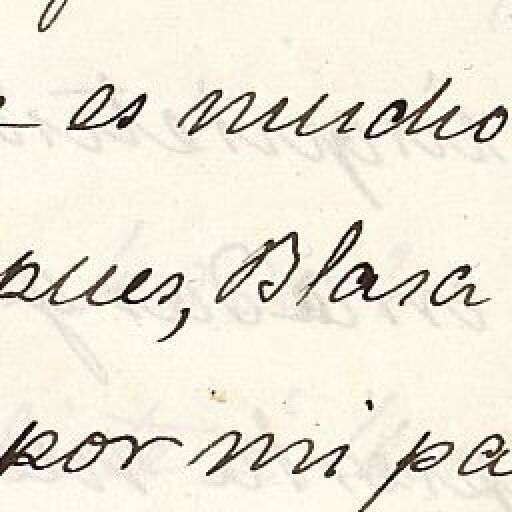 es mucho
pues, Blasa
por mi pa